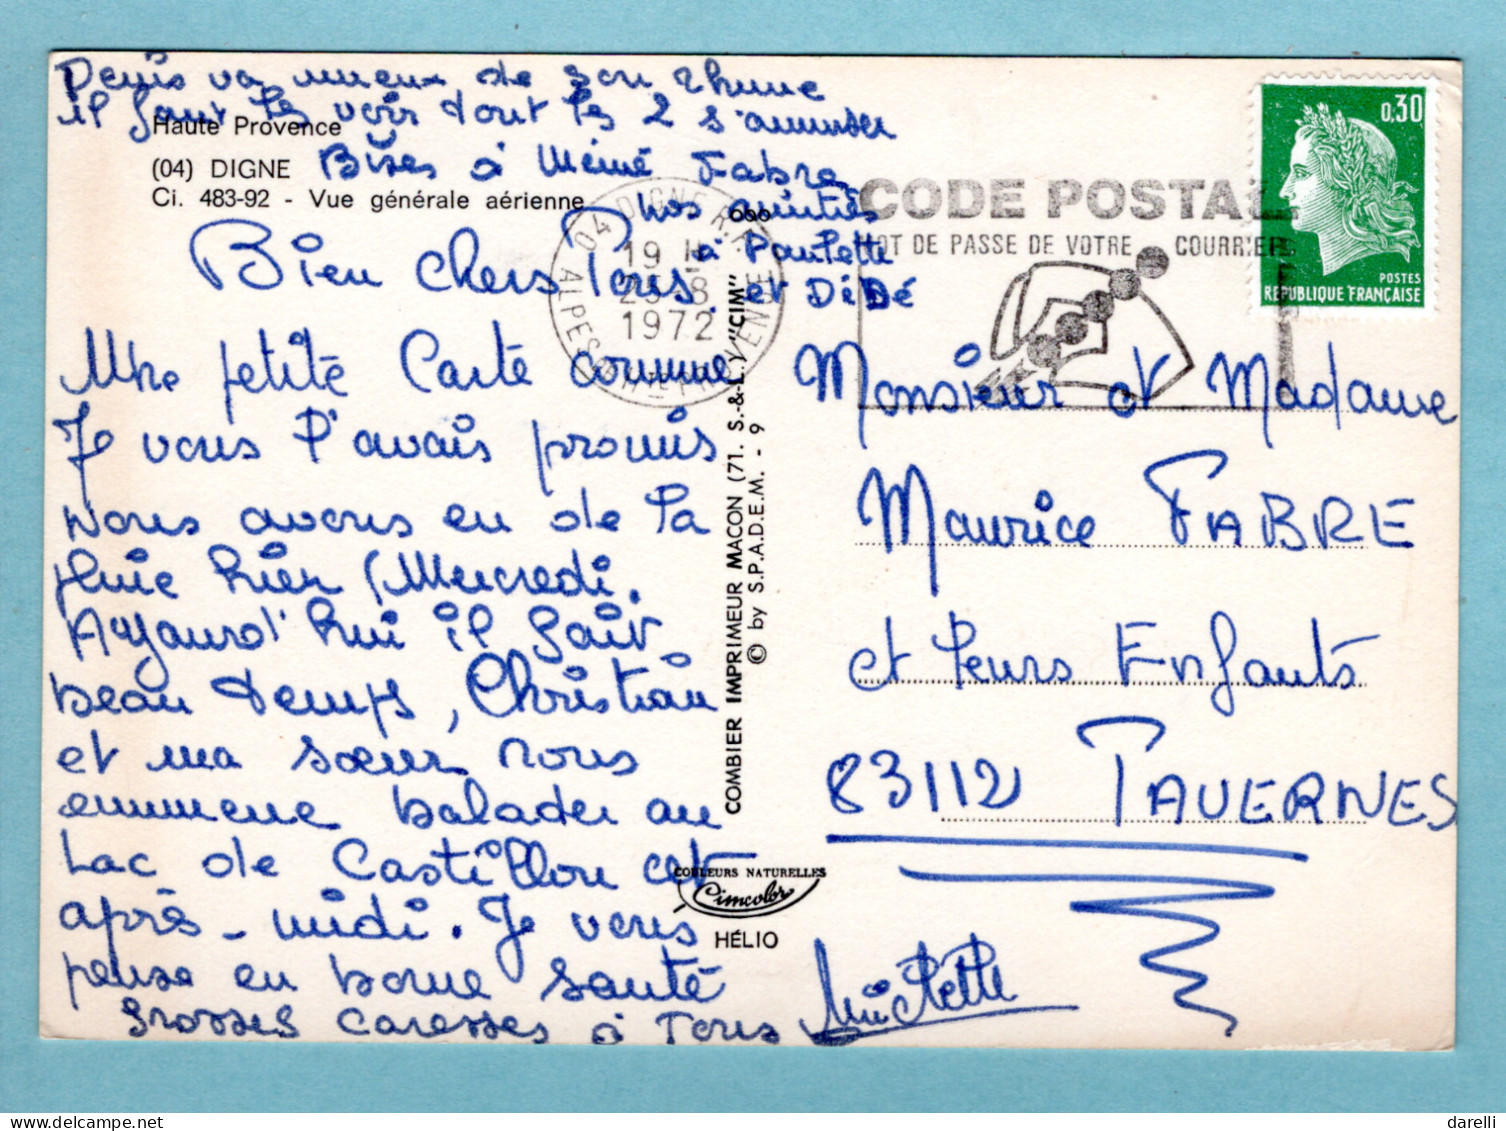 Denis va mieux de son rhume
il faut les voir tout les 2 s'amuser
Haute Provence
(04) DIGNE
Bises à Mémé Fabre
Ci. 483-92 - Vue générale aérienne
nos amitiés
à Paulette
et DéDé
Bien chers Tous.
Une petite Carte comme
Je vous l'avais promis
Nous avons eu de la
pluie hier (Mercredi.
Aujourd'hui il fait
beau temps, Christian
et ma soeur nous
emmene balader au
Lac de Castillon cet
après-midi. Je vous
pense en bonne santé
Grosses caresses à Tous
Michette
04 DIGNE R.P.
19 H
25-8
1972
ALPES DE HTE PROVENCE
CODE POSTAL
MOT DE PASSE DE VOTRE COURRIER
0,30
POSTES
REPUBLIQUE FRANÇAISE
Monsieur et Madame
Maurice FABRE
et leurs Enfants
83112 TAVERNES
COMBIER IMPRIMEUR MACON (71. S.-&-L.) "CIM"
© by S.P.A.D.E.M. - 9
COULEURS NATURELLES
Cimcolor
HÉLIO
delcampe.net
darelli